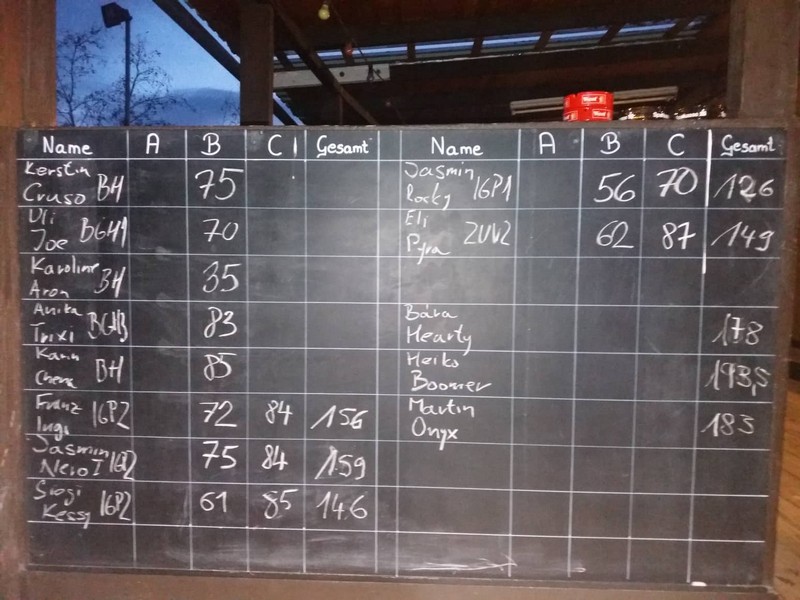 Name A B C Gesamt
Kerstin
Cruso BH 75
Uli
Joe BGH1 70
Karoline
Aron BH 35
Anika
Trixi 83
Karin
BH 85
Franz
Ingi IGP2 72 84 156
Jasmin
Nero I IGP2 75 84 159
Sissi
Kessy IGP2 61 85 146
Name A B C Gesamt
Jasmin
Rocky IGP1 56 70 126
Eli
Pyra ZUV2 62 87 149
Bára
Hearty 178
Heiko
Boomer 193,5
Martin
Onyx 183